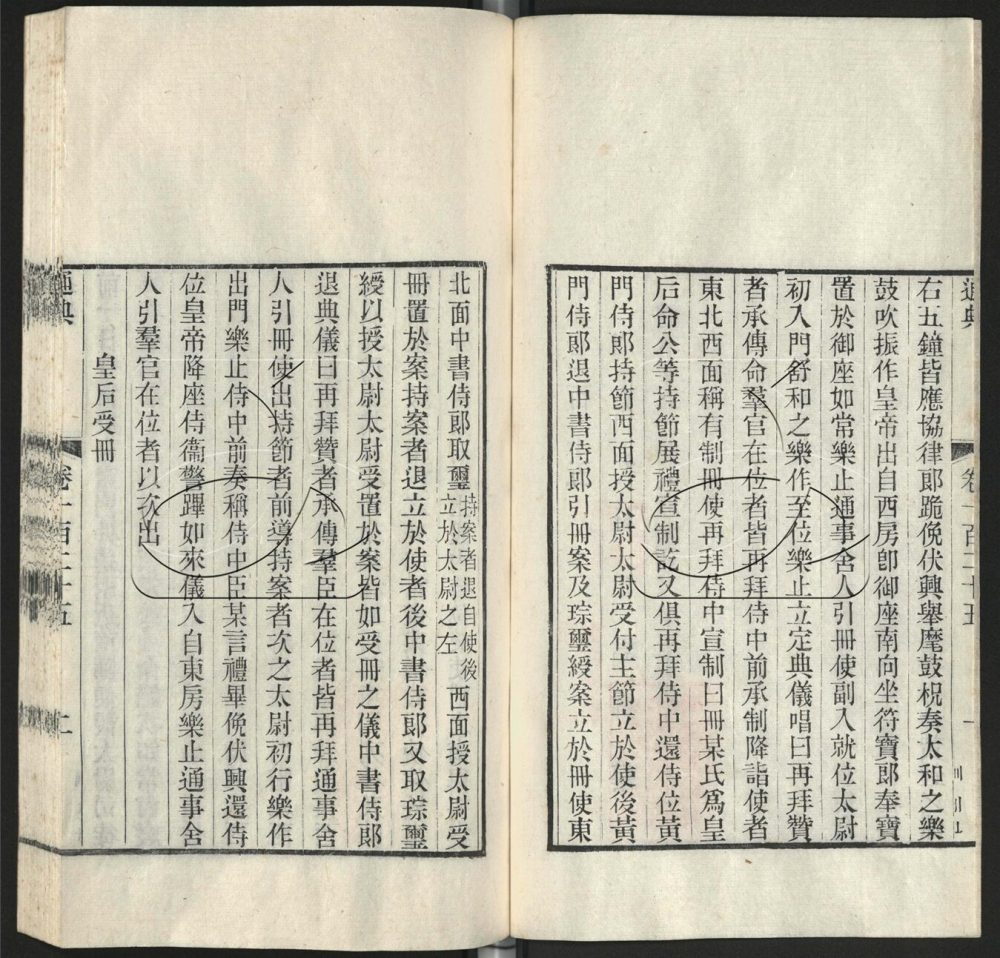 通典
卷一百二十五
一
右五鐘皆應協律郎跪俛伏興舉麾鼓柷奏太和之樂
鼓吹振作皇帝出自西房卽御座南向坐符寶郎奉寶
置於御座如常樂止通事舍人引冊使副入就位太尉
初入門舒和之樂作至位樂止立定典儀唱曰再拜贊
者承傳命羣官在位者皆再拜侍中前承制降詣使者
東北西面稱有制冊使再拜侍中宣制曰冊某氏爲皇
后命公等持節展禮宣制訖又俱再拜侍中還侍位黃
門侍郎持節西面授太尉太尉受付主節立於使後黃
門侍郎退中書侍郎引冊案及琮璽綬案立於冊使東
北面中書侍郎取璽持案者退自使後立於太尉之左西面授太尉受
冊置於案持案者退立於使者後中書侍郎又取琮璽
綬以授太尉太尉受置於案皆如受冊之儀中書侍郎
退典儀曰再拜贊者承傳羣臣在位者皆再拜通事舍
人引冊使出持節者前導持案者次之太尉初行樂作
出門樂止侍中前奏稱侍中臣某言禮畢俛伏興還侍
位皇帝降座侍衞警蹕如來儀入自東房樂止通事舍
人引羣官在位者以次出
皇后受冊
通典
卷一百二十五